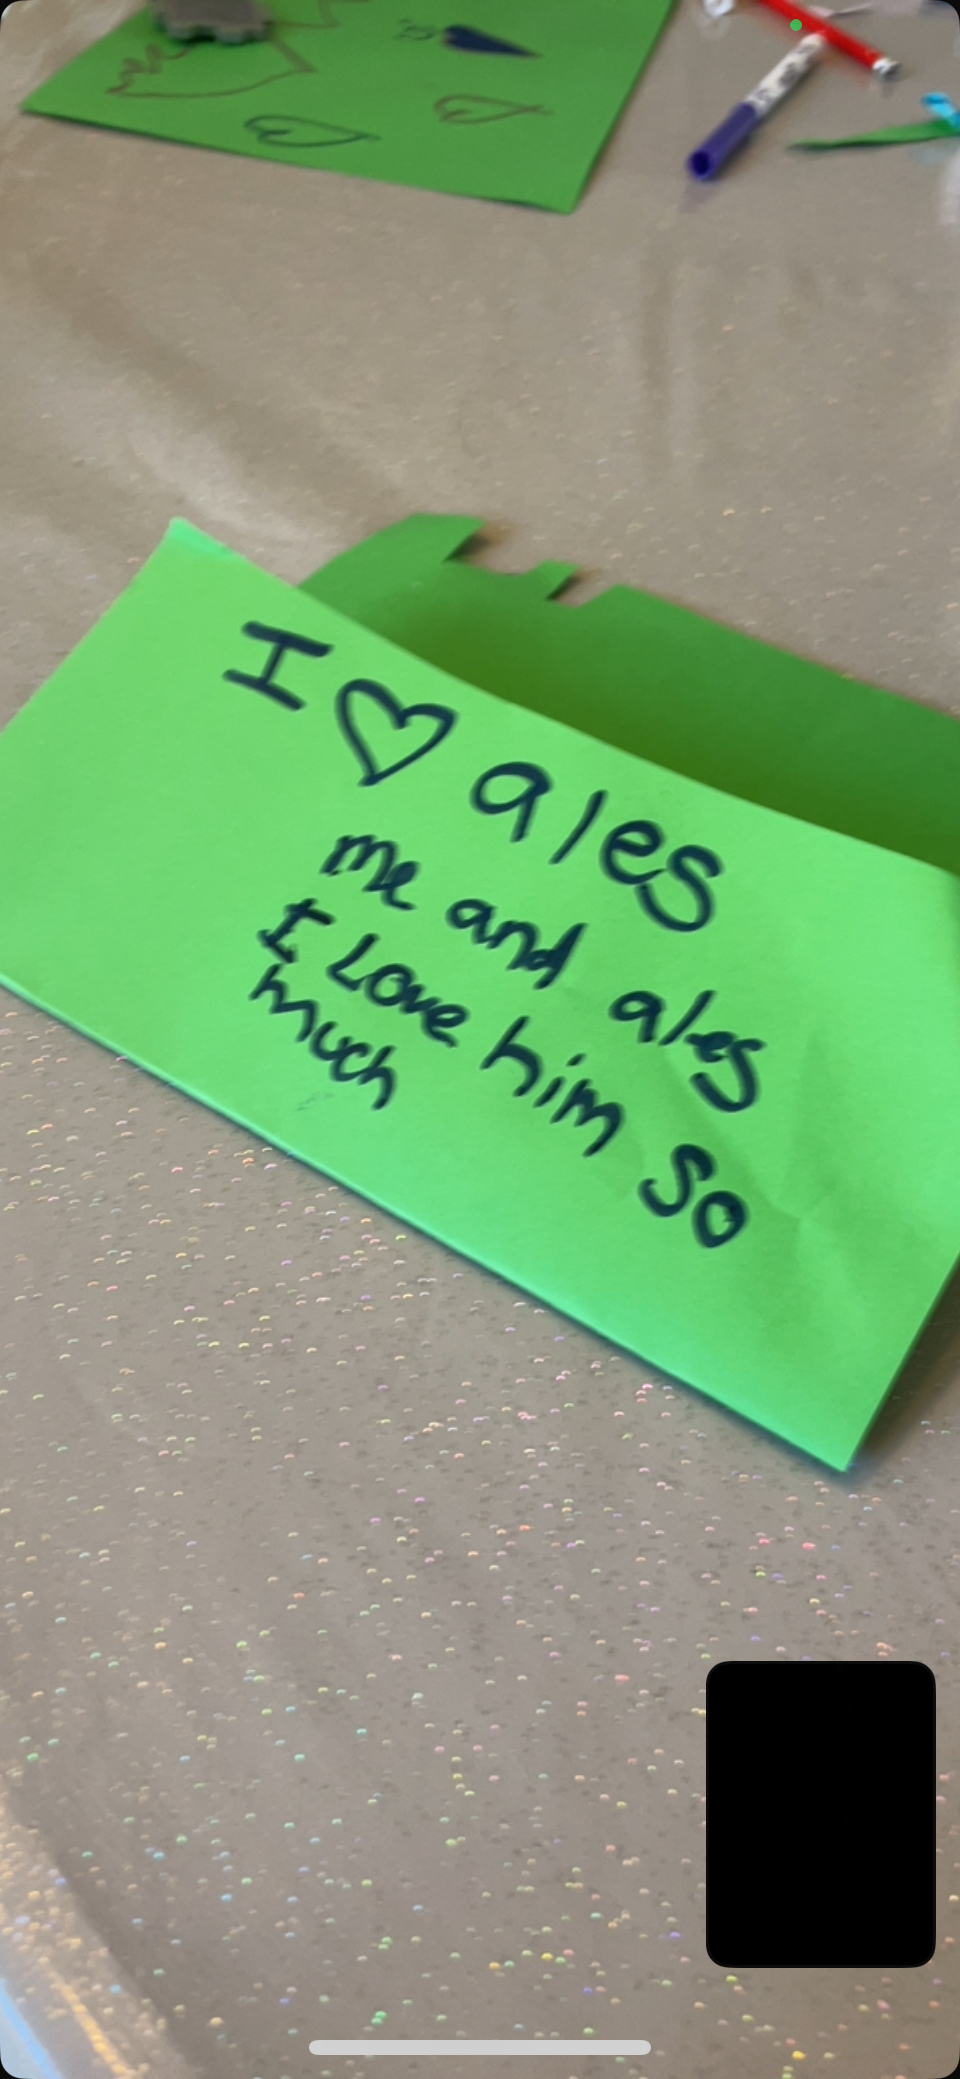 I ♡ ales
me and ales
I Love him so
much